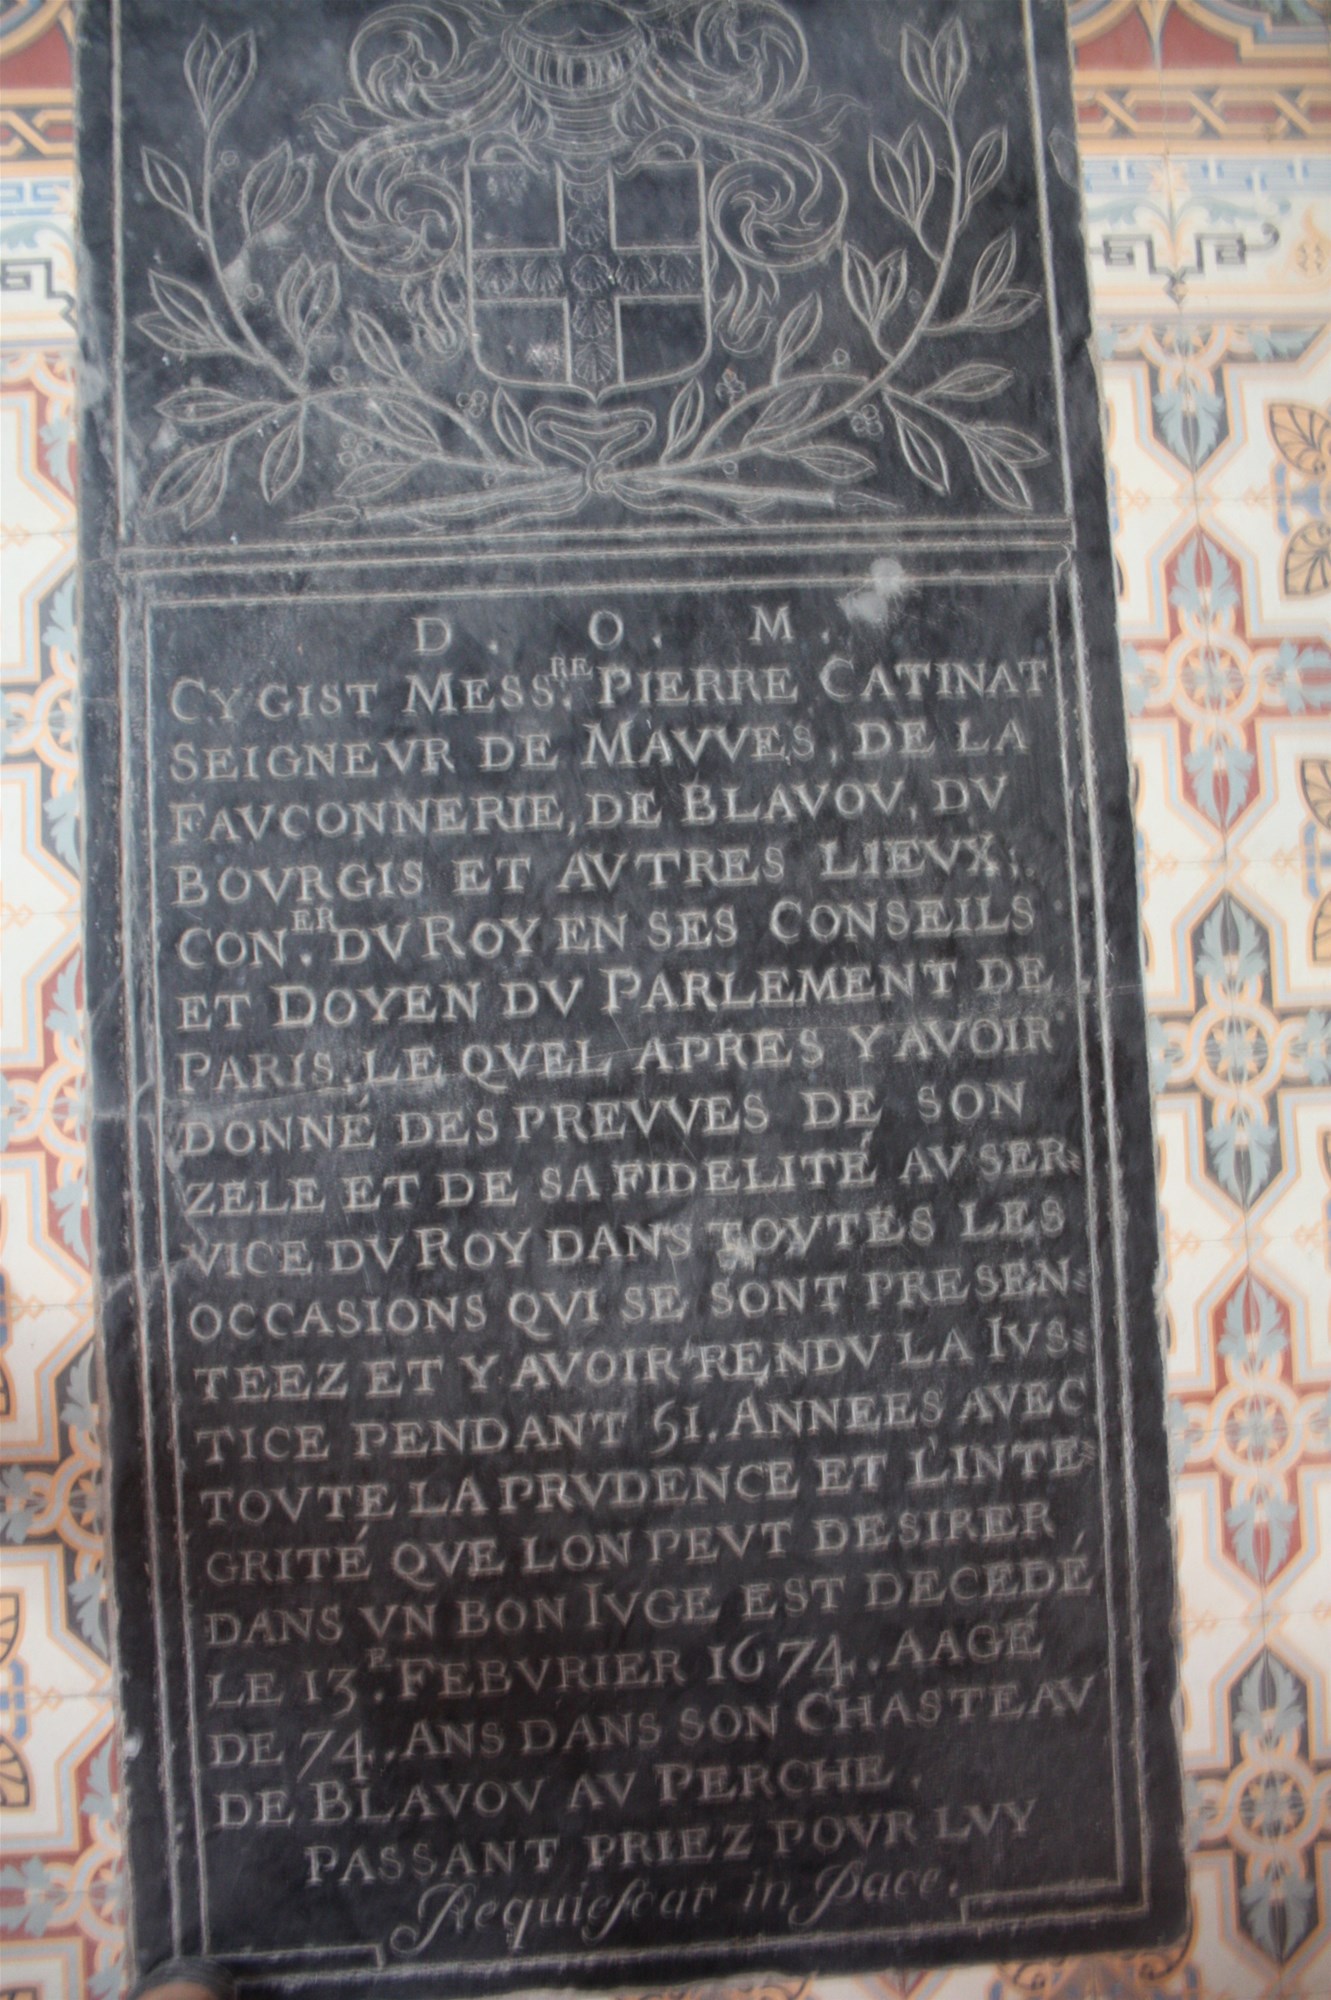 D. O. M.
CY GIST MESS.RE PIERRE CATINAT
SEIGNEVR DE MAVVES, DE LA
FAVCONNERIE, DE BLAVOV, DV
BOVRGIS ET AVTRES LIEVX,
CON.ER DV ROY EN SES CONSEILS
ET DOYEN DV PARLEMENT DE
PARIS, LE QVEL APRES Y AVOIR
DONNÉ DES PREVVES DE SON
ZELE ET DE SA FIDELITÉ AV SER=
VICE DV ROY DANS TOVTES LES
OCCASIONS QVI SE SONT PRESEN=
TEEZ ET Y AVOIR RENDV LA IVS=
TICE PENDANT 51. ANNEES AVEC
TOVTE LA PRVDENCE ET L'INTE=
GRITÉ QVE LON PEVT DESIRER
DANS VN BON IVGE EST DECEDÉ
LE 13.E FEBVRIER 1674. AAGÉ
DE 74. ANS DANS SON CHASTEAV
DE BLAVOV AV PERCHE.
PASSANT PRIEZ POVR LVY
Requiescat in Pace.